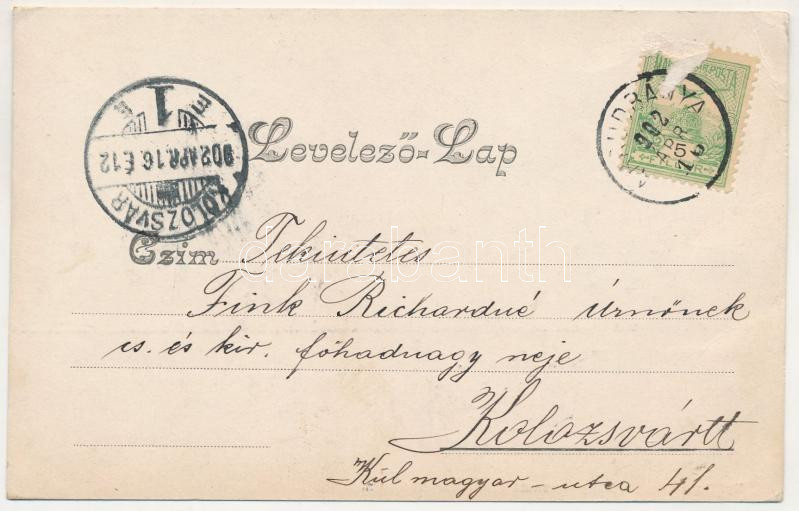 Levelező-Lap
902 APR. 16. É. 12
KOLOZSVÁR
1
902
APR
16
5
Czim Tekintetes
Fink Richardné úrnőnek
cs. és kir. főhadnagy neje
Kolozsvártt
Kül magyar-utca 41.
darabanth